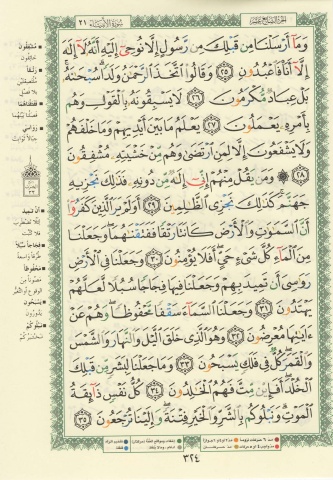 الجزء السابع عشر
سورة الأنبياء ٢١
وَمَآ أَرْسَلْنَا مِن قَبْلِكَ مِن رَّسُولٍ إِلَّا نُوحِىٓ إِلَيْهِ أَنَّهُۥ لَآ إِلَٰهَ
إِلَّآ أَنَا۠ فَٱعْبُدُونِ ٢٥ وَقَالُوا۟ ٱتَّخَذَ ٱلرَّحْمَٰنُ وَلَدًا ۗ سُبْحَٰنَهُۥ ۚ
بَلْ عِبَادٌ مُّكْرَمُونَ ٢٦ لَا يَسْبِقُونَهُۥ بِٱلْقَوْلِ وَهُم
بِأَمْرِهِۦ يَعْمَلُونَ ٢٧ يَعْلَمُ مَا بَيْنَ أَيْدِيهِمْ وَمَا خَلْفَهُمْ
وَلَا يَشْفَعُونَ إِلَّا لِمَنِ ٱرْتَضَىٰ وَهُم مِّنْ خَشْيَتِهِۦ مُشْفِقُونَ
٢٨ ۞ وَمَن يَقُلْ مِنْهُمْ إِنِّىٓ إِلَٰهٌ مِّن دُونِهِۦ فَذَٰلِكَ نَجْزِيهِ
جَهَنَّمَ ۚ كَذَٰلِكَ نَجْزِى ٱلظَّٰلِمِينَ ٢٩ أَوَلَمْ يَرَ ٱلَّذِينَ كَفَرُوٓا۟
أَنَّ ٱلسَّمَٰوَٰتِ وَٱلْأَرْضَ كَانَتَا رَتْقًا فَفَتَقْنَٰهُمَا ۖ وَجَعَلْنَا
مِنَ ٱلْمَآءِ كُلَّ شَىْءٍ حَىٍّ ۖ أَفَلَا يُؤْمِنُونَ ٣٠ وَجَعَلْنَا فِى ٱلْأَرْضِ
رَوَٰسِىَ أَن تَمِيدَ بِهِمْ وَجَعَلْنَا فِيهَا فِجَاجًا سُبُلًا لَّعَلَّهُمْ
يَهْتَدُونَ ٣١ وَجَعَلْنَا ٱلسَّمَآءَ سَقْفًا مَّحْفُوظًا ۖ وَهُمْ عَنْ
ءَايَٰتِهَا مُعْرِضُونَ ٣٢ وَهُوَ ٱلَّذِى خَلَقَ ٱلَّيْلَ وَٱلنَّهَارَ وَٱلشَّمْسَ
وَٱلْقَمَرَ ۖ كُلٌّ فِى فَلَكٍ يَسْبَحُونَ ٣٣ وَمَا جَعَلْنَا لِبَشَرٍ مِّن قَبْلِكَ
ٱلْخُلْدَ ۖ أَفَإِي۟ن مِّتَّ فَهُمُ ٱلْخَٰلِدُونَ ٣٤ كُلُّ نَفْسٍ ذَآئِقَةُ
ٱلْمَوْتِ ۗ وَنَبْلُوكُم بِٱلشَّرِّ وَٱلْخَيْرِ فِتْنَةً ۖ وَإِلَيْنَا تُرْجَعُونَ ٣٥
مشفقون
رتقا
ففتقناهما
رواسي
أن تميد
فجاجا سبلا
محفوظا
يسبحون
نبلوكم
٣٢٤